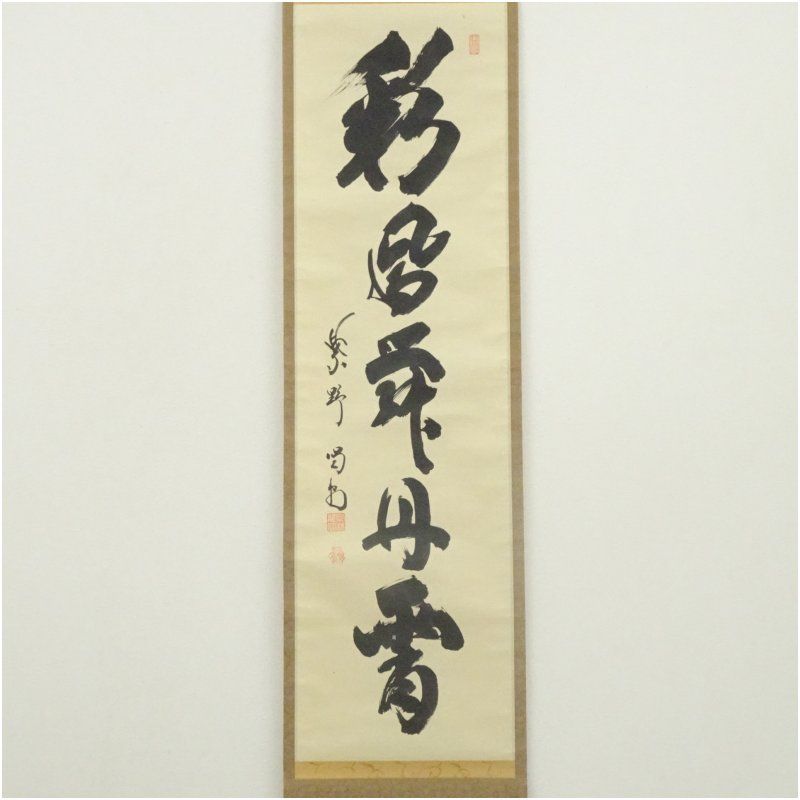 彩鳳舞丹霄
紫野